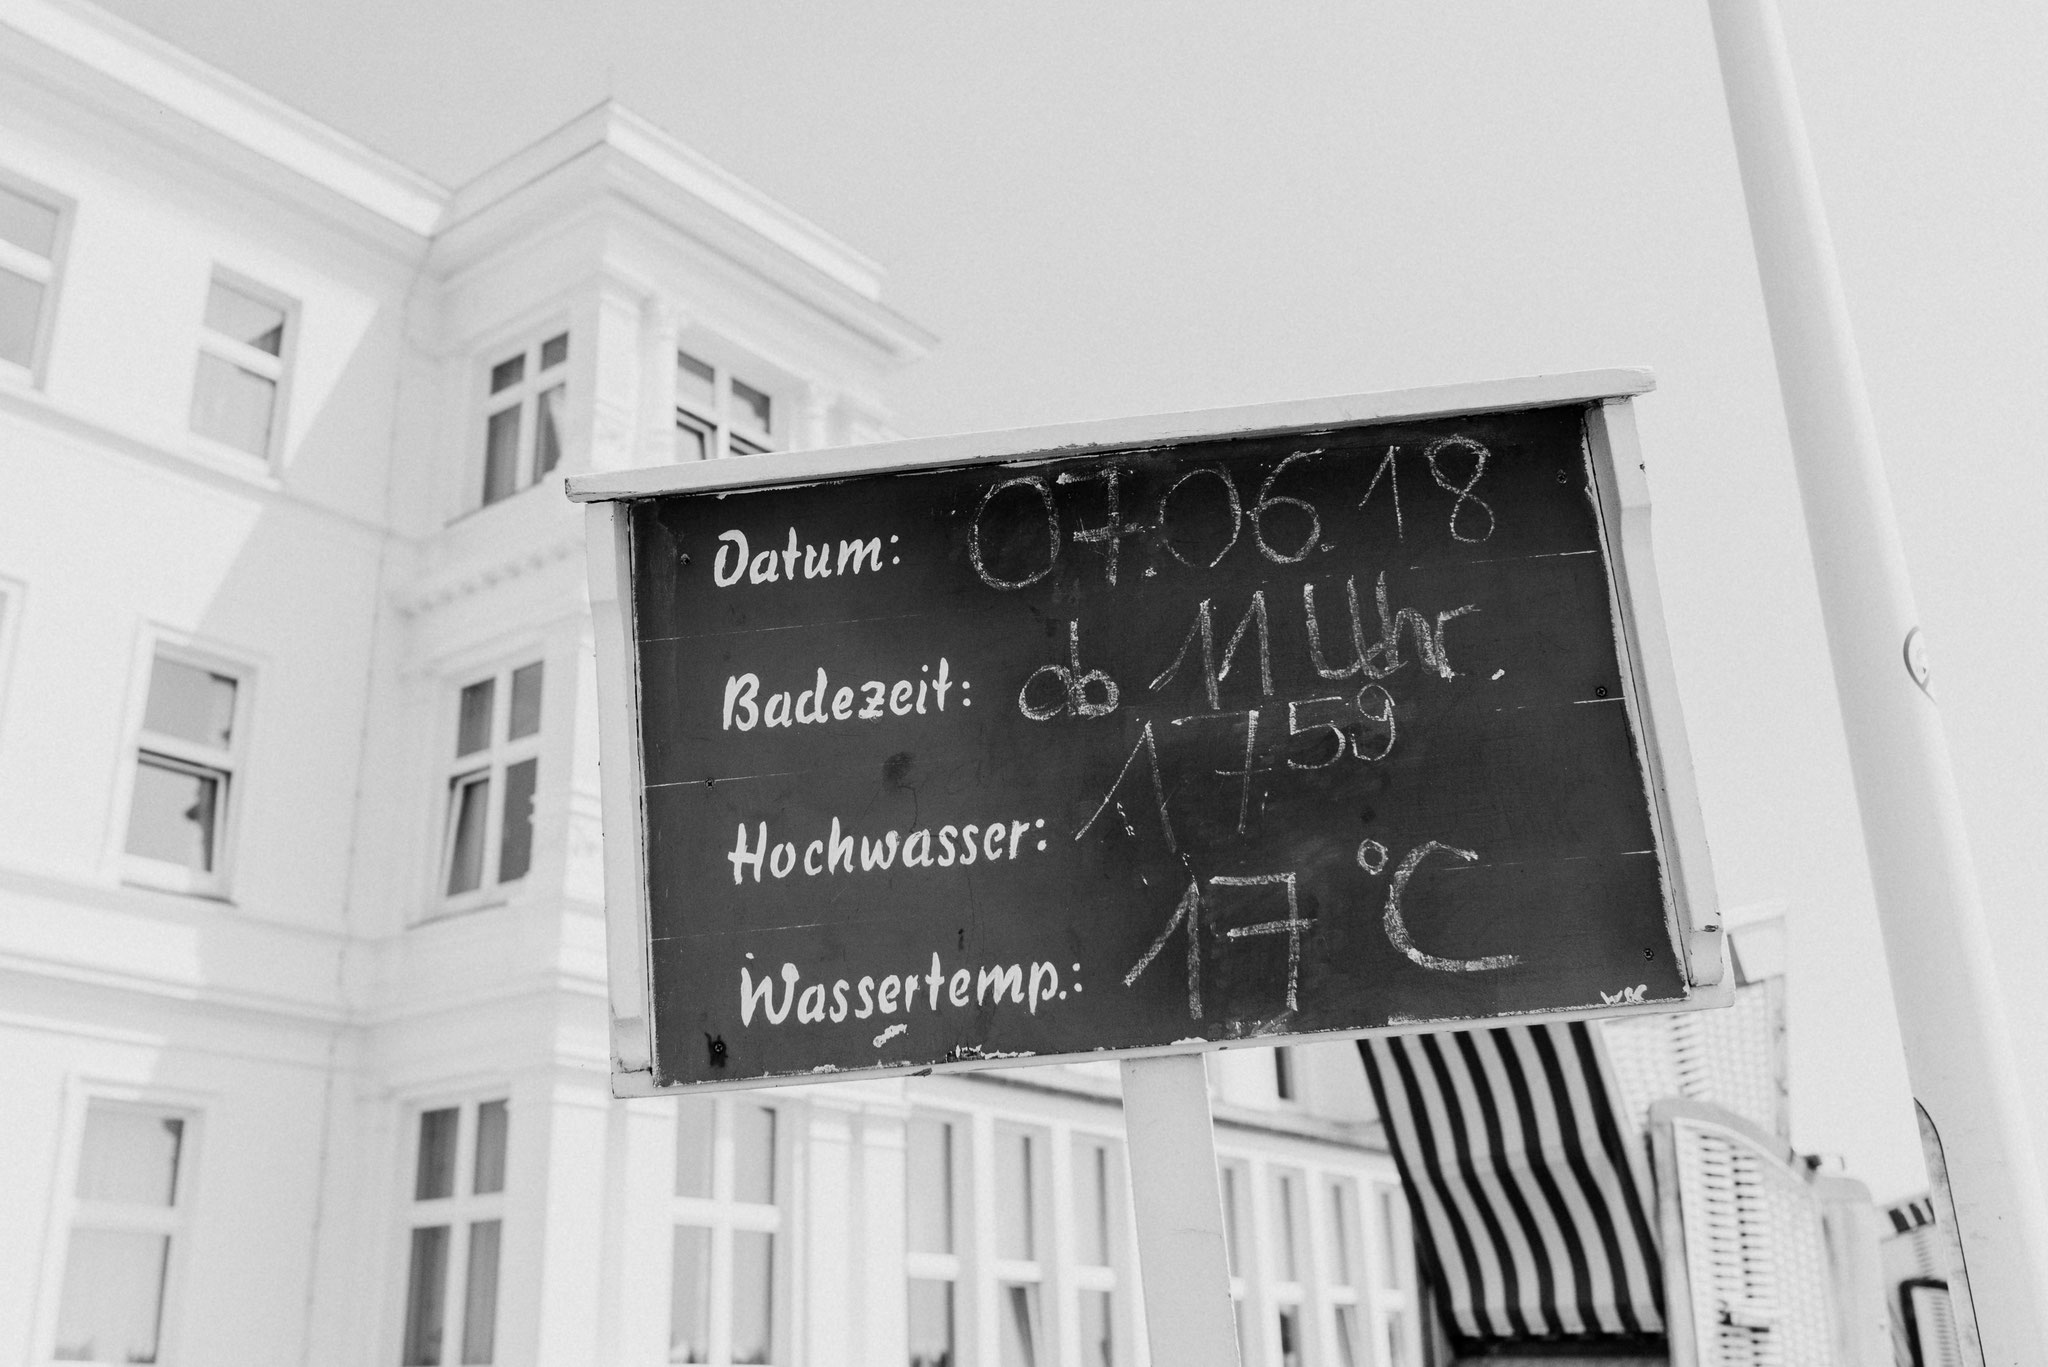 Datum: 07.06.18
Badezeit: ab 11 Uhr.
Hochwasser: 17 59
Wassertemp.: 17 °C